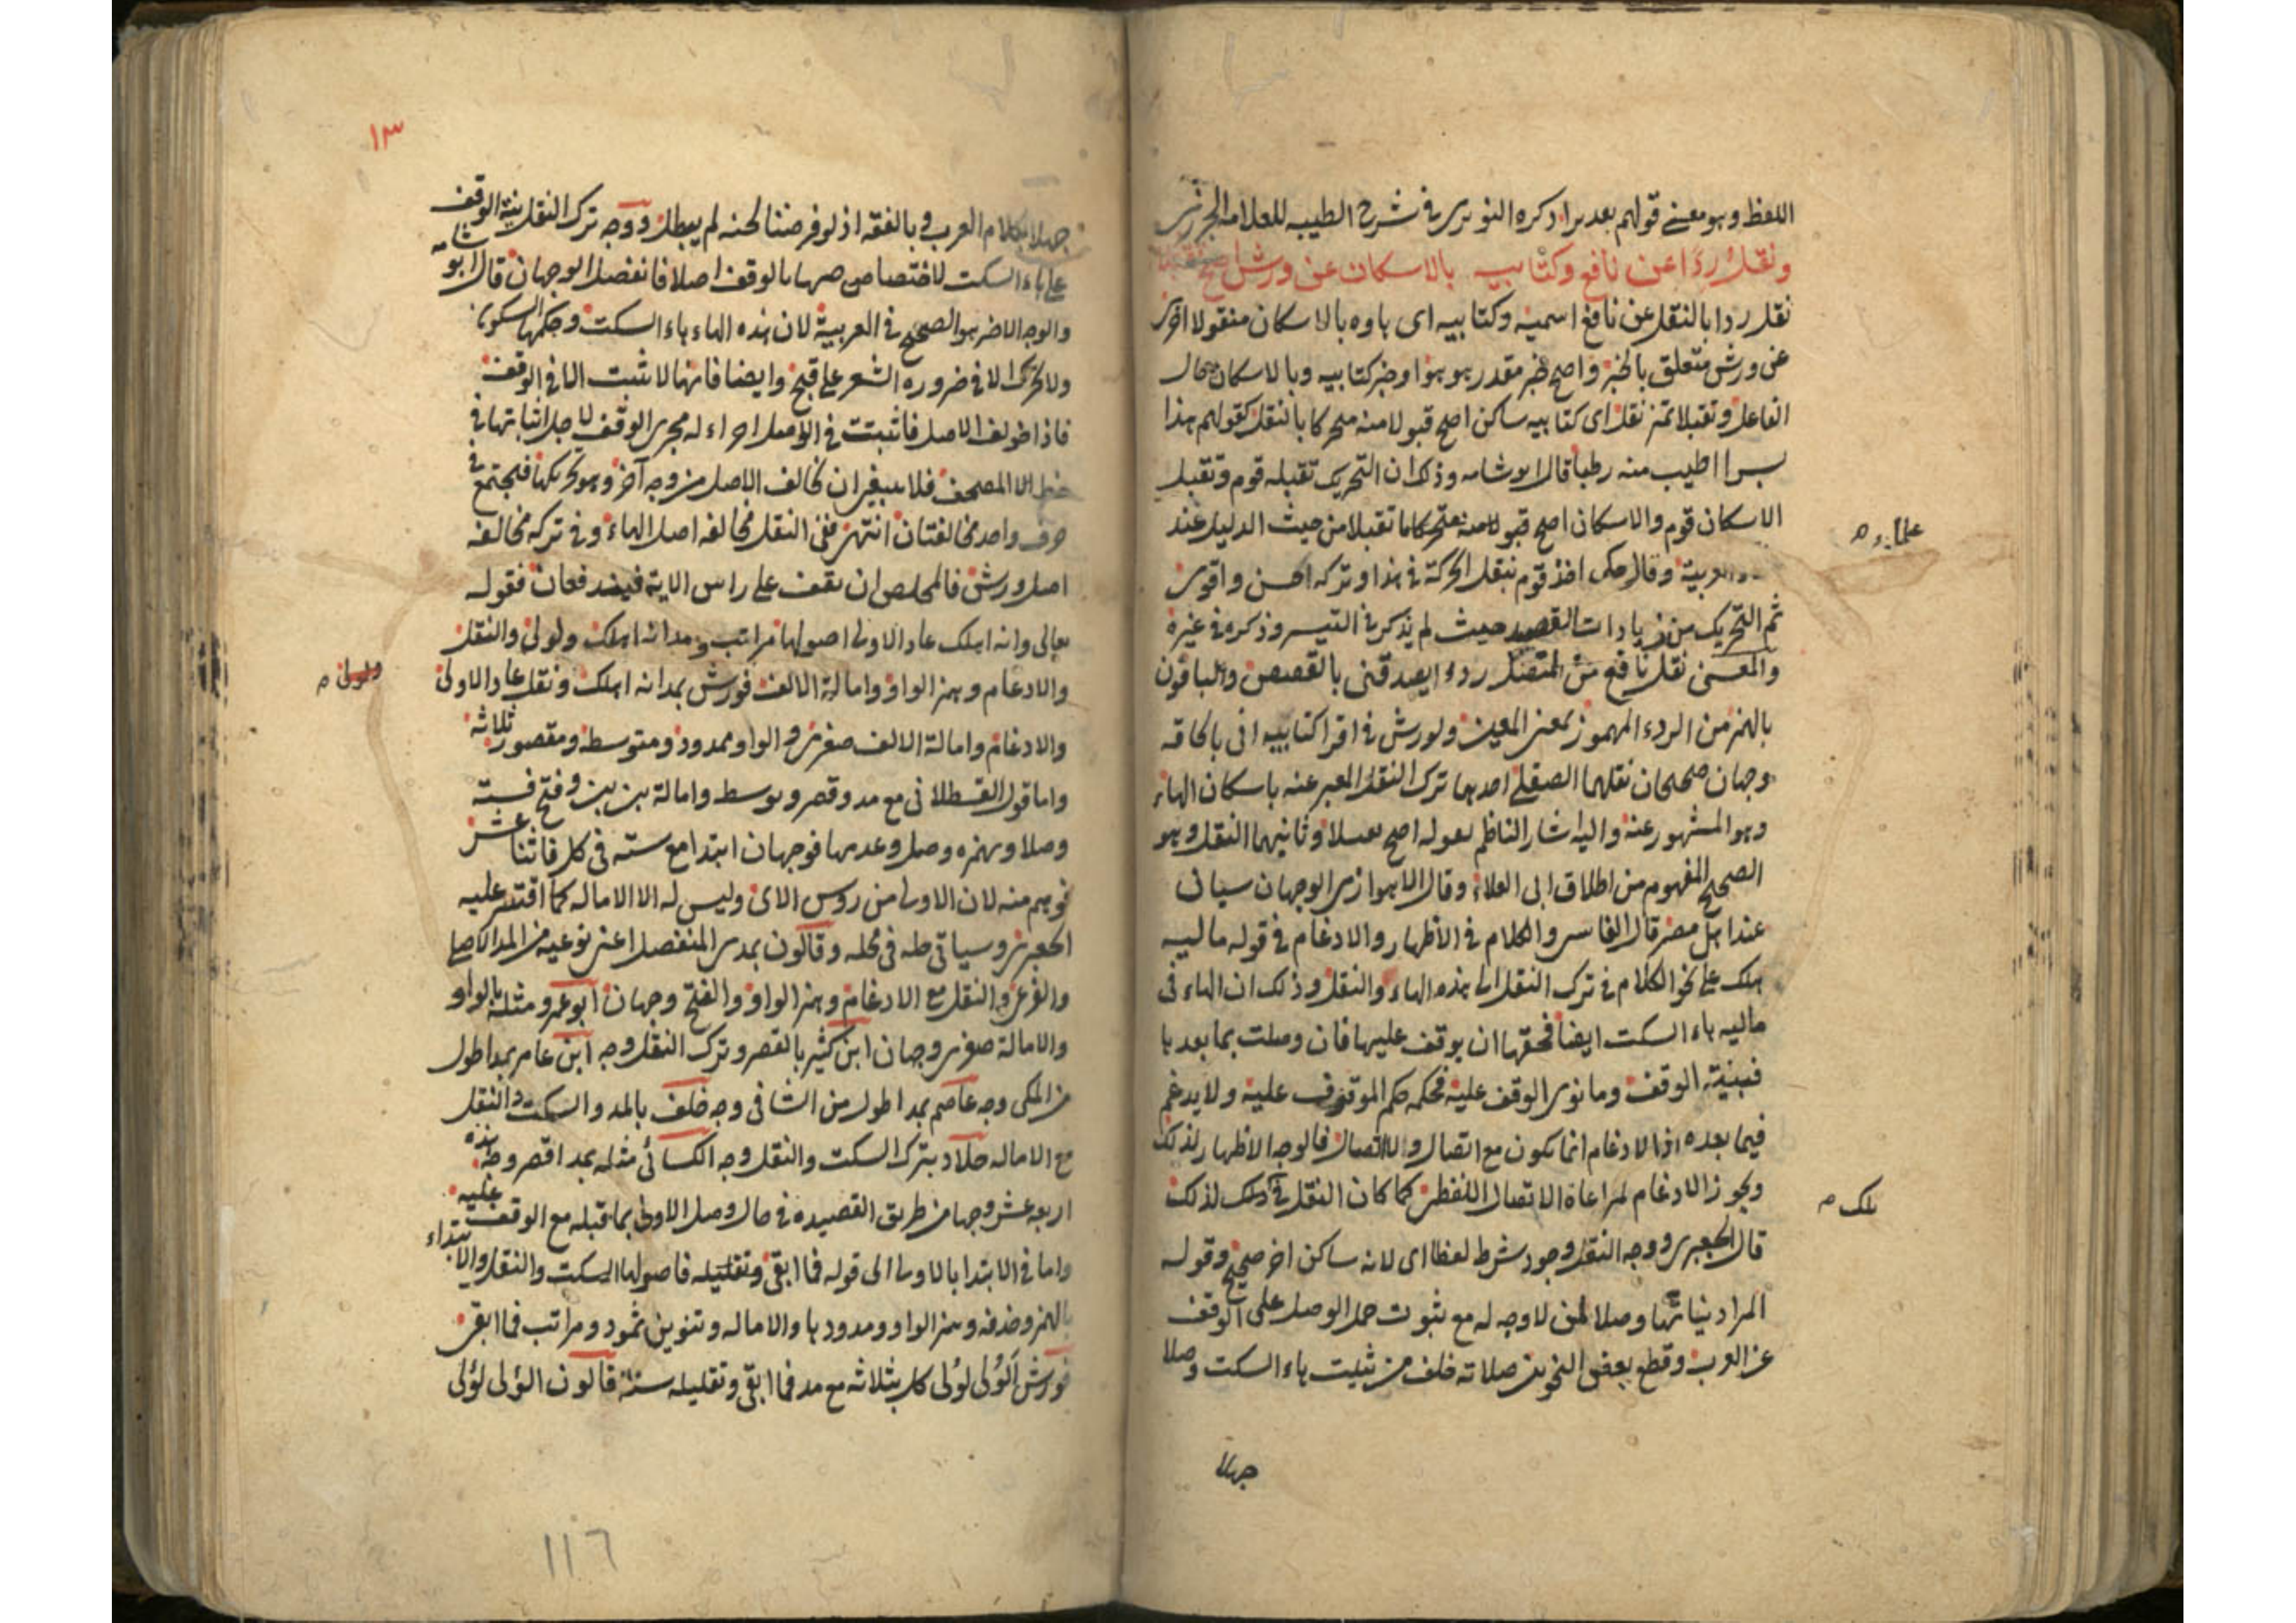 اللفظ وهو معنى قولهم بعد برا ذكره النويري في شرح الطيبه للعلامه الجزري
ونقل ردا عن نافع وكتابيه بالاسكان عن ورش اصح تقبلا
نقل ردا بالنقل عن نافع اسمية وكتابيه اى هاوه بالاسكان منقولا اخرى
عن ورش متعلق بالخبر واصح خبر مقدر هو هو او خبر كتابيه وبالاسكان حال
الفاعل وتقبلا تمز نقل اى كتابيه ساكن اصح قبولا منه متحركا بالنقل كقولهم هذا
بسرا اطيب منه رطبا قال ابو شامه وذكر ان التحريك تقبله قوم وتقبل
الاسكان قوم والاسكان اصح قبولا منه متحركا ما تقبلا من حيث الدليل عند
علماء
العربية وقال مكى اخذ قوم بنقل الحركة في هذا وتركه احسن واقوى
ثم التحريك من زيادات القصيد حيث لم يذكر في التيسر وذكره في غيره
والمعنى نقل نافع من المتصل ردء ايصدقنى بالقصص والباقون
بالهمز من الردء المهموز بمعنى المعين ولورش في اقرا كتابيه انى بالحاقه
وجهان صحيحان نقلهما الصقلي احدهما ترك النقل المعبر عنه باسكان الهاء
وهو المشهور عنه واليه اشار الناظم بقوله اصح تقبلا وثانيهما النقل وهو
الصحيح المفهوم من اطلاق ابى العلاء وقال الاهوازى الوجهان سيان
عند اهل مصر قال الفاسى والكلام في الاظهار والادغام في قوله ماليه
هلك على نحو الكلام في ترك النقل الى هذه الهاء والنقل وذلك ان الهاء فى
ماليه هاء السكت ايضا فحقها ان يوقف عليها فان وصلت بما بعدها
فبنية الوقف وما نوى الوقف عليه فحكمه حكم الموقوف عليه ولا يدغم
فيما بعده اذ الادغام انما يكون مع اتصال ولا اتصال فالوجه الاظهار لذلك
ويجوز الادغام لمراعاة الاتصال اللفظى كما كان النقل في ذلك لذلك
تلك
قال الجعبرى ووجه النقل وجود شرط لفظا اى لانه ساكن اخر صحيح وقوله
المراد نياتها وصلا لحن لا وجه له مع ثبوت حمل الوصل على الوقف
عن العرب وقطع بعض النحويين صلاته خلف من يثبت هاء السكت وصلا
جهلا
١٣
جهلا بكلام العرب وبالفقه اذ لو فرضنا لحنه لم يبطل ووجه ترك النقل بنية الوقف
على هاء السكت لاختصاصها بالوقف اصلا فانفصل الوجهان قال ابو شامه
والوجه الاخر هو الصحيح في العربية لان هذه الهاء هاء السكت وحكمها السكون
ولا تحرك الا في ضروره الشعر على قبح وايضا فانها لا تثبت الا في الوقف
فاذا خولف الاصل فاثبتت في الوصل اجراء له مجرى الوقف لاجل اثباتها في
خط المصحف فلا ينبغى ان يخالف الاصل من وجه آخر وهو تحريكها فيجتمع في
حرف واحد مخالفتان انتهى ففى النقل مخالفه اصل الهاء وفي تركه مخالفه
اصل ورش فالمخلص ان يقف على راس الاية فيندفعان فقوله
تعالى وانه اهلك عاد الاولى اصولها مراتب مد انه اهلك ولولى والنقل
والادغام وهمز الواو وامالة الالف فورش بمد انه اهلك ونقل عاد الاولى
والادغام وامالة الالف صغرى والواو ممدود ومتوسط ومقصور ثلاثة
واما قول القسطلانى مع مد وقصر وتوسط وامالة بين بين وفتح فستة
وصلا وبهمزه وصل وعدمها فوجهان ابتدا مع سته فى كل فاثنا عشر
فوهم منه لان الاولى من روس الاى وليس له الا الاماله كما اقتصر عليه
الجعبرى وسياتى طه في محله وقالون بمدى المنفصل اعنى نوعيه من المد الاصلي
والفرعى والنقل مع الادغام وهمز الواو والفتح وجهان ابو عمرو مثله بالواو
والامالة صغرى وجهان ابن كثير بالقصر وترك النقل وجه ابن عامر بمد اطول
من المكى وجه عاصم بمد اطول من الشافى وجه خلف بالمد والسكت والنقل
مع الاماله خلاد بترك السكت والنقل وجه الكسائى مثله بمد اقصر وجه هذه
اربعه عشر وجها من طريق القصيده في حال وصل الاولى بما قبله مع الوقف عليه
واما في الابتدا بالاولى الى قوله فما ابقى وتقليله فاصولها السكت والنقل والابتداء
بالهمز وحذفه وهمز الواو ومدودها والاماله وتنوين ثمود ومراتب فما ابقى
فورش اَلُولى لُولى كل بثلاثه مع مد فما ابقى وتقليله ستة قالون الؤلى لؤلى
١١٦